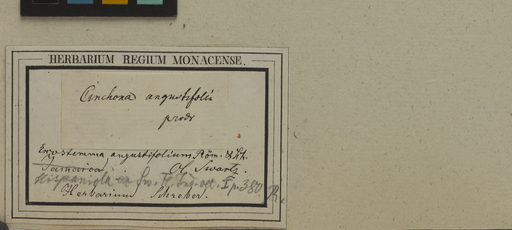 HERBARIUM REGIUM MONACENSE.
Cinchona angustifolia
prodr
Exostemma angustifolium Röm. & Sch.
Jamaica. Ol. Swartz.
Hispaniola Sw. Fl. Ind. occ. I p. 380
Herbarium Schreber.